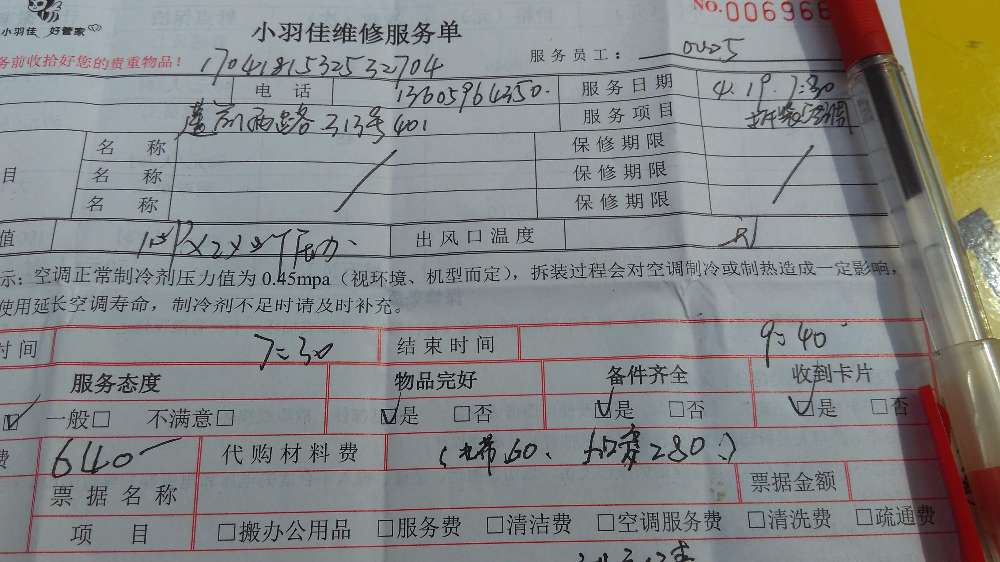 小羽佳 好管家
NO.006966
小羽佳维修服务单
务前收拾好您的贵重物品！ 170418153253 2704 服务员工： 0025
电 话 13605964350. 服务日期 4.19.7:30
莲前西路313号401 服务项目 拆装空调
目 名 称 保修期限
名 称 保修期限
名 称 保修期限
值 出风口温度
示：空调正常制冷剂压力值为0.45mpa（视环境、机型而定），拆装过程会对空调制冷或制热造成一定影响，
使用延长空调寿命，制冷剂不足时请及时补充。
时间 7:30 结束时间 9:40
服务态度 物品完好 备件齐全 收到卡片
☑ 一般□ 不满意□ ☑是 □否 ☑是 □否 ☑是 □否
费 640 代购材料费
票据名称 票据金额
项 目 □搬办公用品 □服务费 □清洁费 □空调服务费 □清洗费 □疏通费